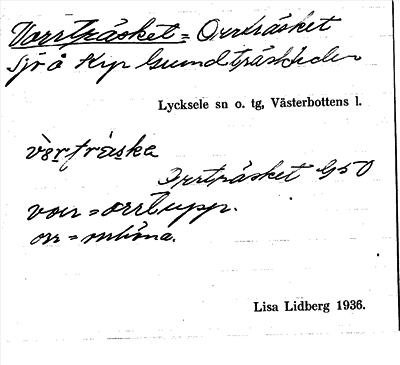 Vorrträsket = Orrträsket
sjö å Krp Gumdträskheden
Lycksele sn o. tg, Västerbottens l.
vo̱rträska
Orrträsket G50
vorr = orrtupp.
orr = orrhöna.
Lisa Lidberg 1936.